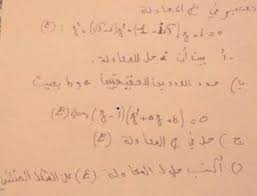 نعتبر في ℂ المعادلة
(E) : z³ + (√3 - 1)z² + (1 - √3)z - 1 = 0
أ - بين أن 1 حل للمعادلة
ب) حدد العددين الحقيقيين a و b بحيث
(E) ⟺ (z - 1)(z² + az + b) = 0
ج) حل في ℂ المعادلة (E)
د) أكتب حلول المعادلة (E) على الشكل المثلثي